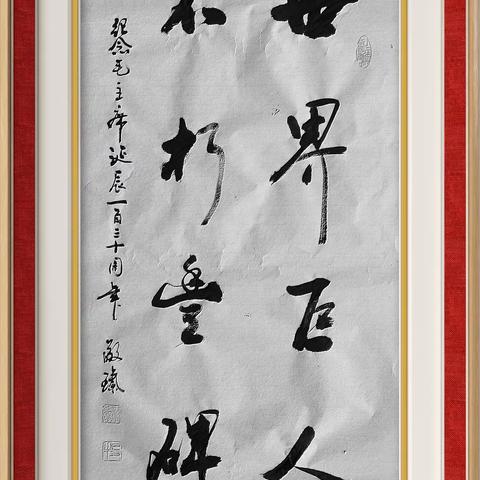 世界巨人
不朽豐碑
紀念毛主席诞辰一百三十周年